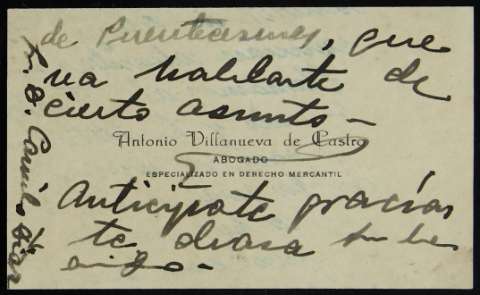 de Puenteareas, que
va hablarte de
cierto asunto —
Antonio Villanueva de Castro
ABOGADO
ESPECIALIZADO EN DERECHO MERCANTIL
Anticípate gracias
te desea tu
amigo —
Sr. D. Camilo Díaz